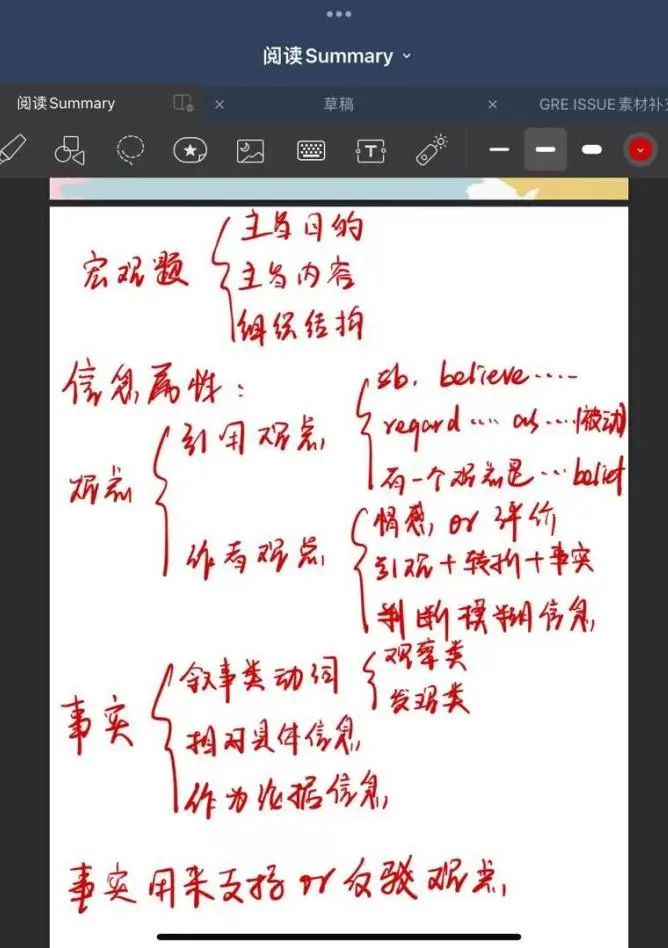 阅读Summary
阅读Summary
草稿
GRE ISSUE素材补
宏观题
主旨目的
主旨内容
组织结构
信息属性：
观点
引用观点
sb. believe……
regard …. as …. (被动)
有一个观点是 … belief
作者观点
情感 or 评价
引观+转折+事实
判断模糊信息
事实
叙事类动词
观察类
发现类
相对具体信息
作为论据信息
事实用来支持 or 反驳观点